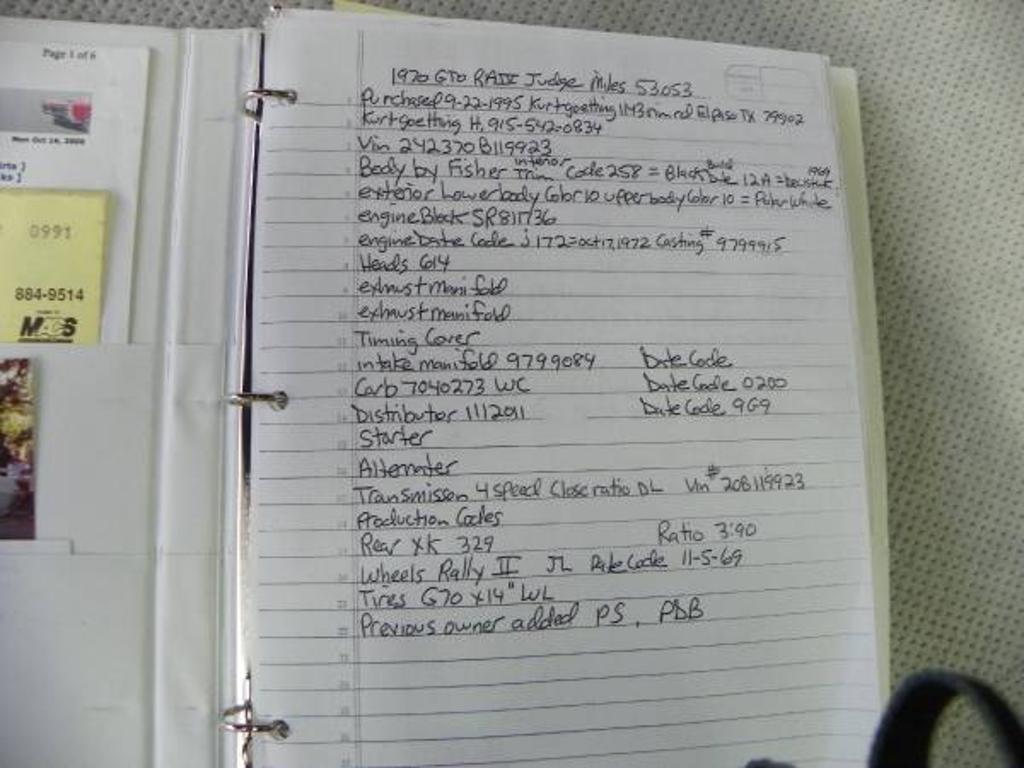 Page 1 of 6
0991
884-9514
MACS
1970 GTO RAIII Judge Miles 53053
Purchased 9-22-1995 Kurt goetting El Paso TX 79902
Kurt goetting H. 915-542-0834
Vin 242370B119923
Body by Fisher interior Trim Code 258 = Black Build Date 12A = Dec 1st wk 1969
exterior Lower body Color 10 upper body Color 10 = Polar White
engine Block SR811736
engine Date Code j172=oct 17, 1972 Casting # 9799915
Heads 614
exhaust manifold
exhaust manifold
Timing Cover
intake manifold 9799084 Date Code
Carb 7040273 WC Date Code 0200
Distributor 1112011 Date Code 9G9
Starter
Alternater
Transmisson 4 speed Close ratio DL Vin # 20B119923
Production Codes
Rear XK 329 Ratio 3:90
Wheels Rally II JL Date Code 11-5-69
Tires G70 x14" WL
Previous owner added PS, PDB